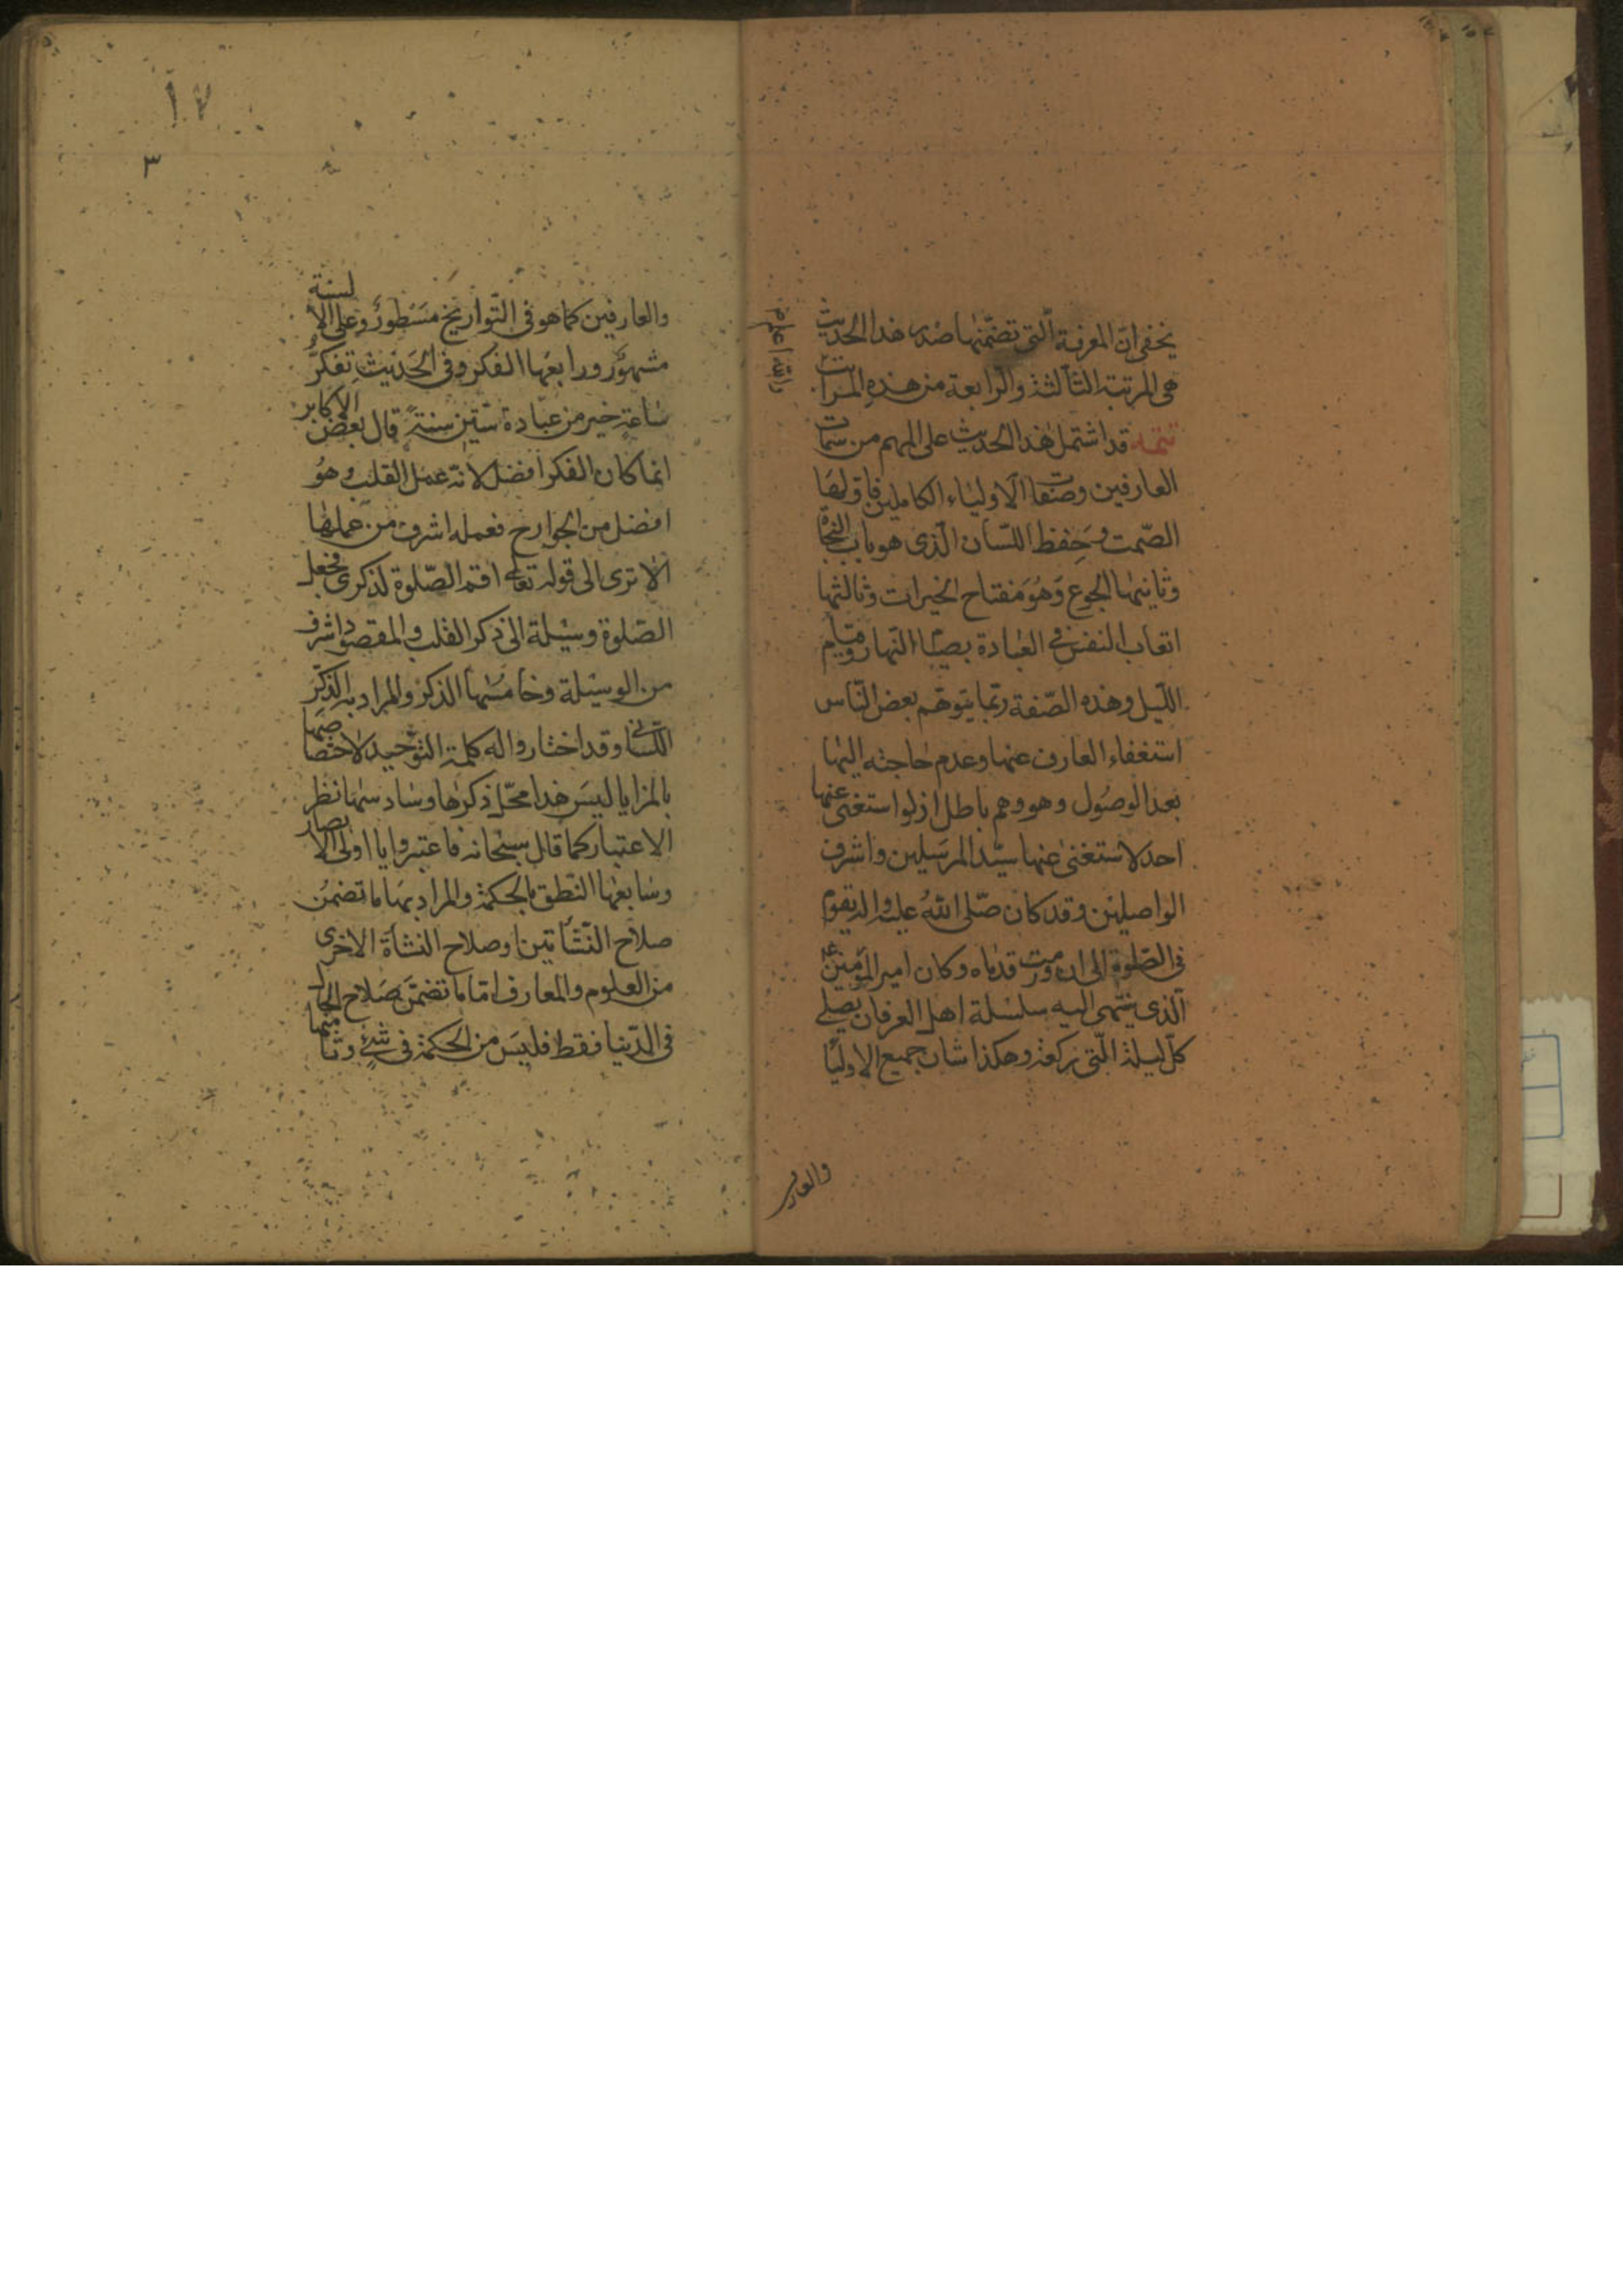 يخفى ان المعرفة الّتى تضمّنها صدر هذا الحديث
هى المرتبة الثالثة والرابعة من هذه المراتب
والله اعلم
تتمه قد اشتمل هذا الحديث على المهم من سمات
العارفين وصفات الاولياء الكاملين فاولها
الصّمت وحفظ اللسان الّذى هو باب النجاة
وثانيتها الجوع وهو مفتاح الخيرات وثالثها
اتعاب النفس فى العبادة بصيام النهار وقيام
اللّيل وهذه الصّفة ربّما يتوهّم بعض النّاس
استغناء العارف عنها وعدم حاجته اليها
بعد الوصول وهو وهم باطل اذ لو استغنى عنها
احد لاستغنى عنها سيّد المرسلين واشرف
الواصلين وقد كان صلّى الله عليه واله يقوم
فى الصّلوة الى ان ورمت قدماه وكان امير المؤمنين ع
الّذى ينتهى اليه سلسلة اهل العرفان يصلى
كلّ ليلة الّتى ركعة وهكذا شان جميع الاوليا
والعار
٣
والعارفين كما هو فى التّواريخ مسطور وعلى الالسنة
مشهور ورابعها الفكر وفى الحديث تفكّر
ساعة خير من عبادة ستّين سنة قال بعض الاكابر
انما كان الفكر افضل لانه عمل القلب وهو
افضل من الجوارح فعمله اشرف من عملها
الا ترى الى قوله تعالى اقم الصّلوة لذكرى فجعل
الصّلوة وسيلة الى ذكر القلب والمقصود اشرف
من الوسيلة وخامستها الذكر والمراد به الذّكر
اللسانى وقد اختاروا له كلمة التوحيد لاختصاصها
بالمزايا ليس هذا محلّ ذكرها وسادستها نظر
الاعتبار كما قال سبحانه فاعتبروا يا اولى الابصار
وسابعها النّطق بالحكمة والمراد بها ما تضمن
صلاح النّشأتين او صلاح النشأة الاخرى
من العلوم والمعارف امّا ما تضمّن صلاح الحال
فى الدّنيا فقط فليس من الحكمة فى شئ وثامنها